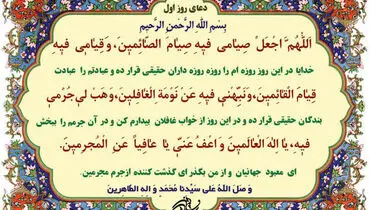 دعای روز اول
بِسْمِ اللَّهِ الرَّحْمنِ الرَّحِیمِ
اَللّهُمَّ اجْعَلْ صِیامی فیهِ صِیامَ الصّائِمینَ،وَقِیامی فیهِ
خدایا در این روز روزه ام را روزه روزه داران حقیقی قرار ده و عبادتم را عبادت
قِیامَ الْقائِمینَ،وَنَبِّهْنی فیهِ عَنْ نَوْمَةِ الْغافِلینَ،وَهَبْ لی جُرْمی
بندگان حقیقی قرار ده و در این روز از خواب غافلان بیدارم کن و در آن جرمم را ببخش
فیهِ،یا اِلهَ الْعالَمینَ وَاعْفُ عَنّی یا عافِیاً عَنِ الْمُجرِمینَ.
ای معبود جهانیان و از من بگذر ای گذشت کننده ازجرم مجرمین.
وَ صَلَّ اللهُ عَلی سَیِّدِنا مُحَمَّدٍ وَ الِهِ الطّاهِرینَ